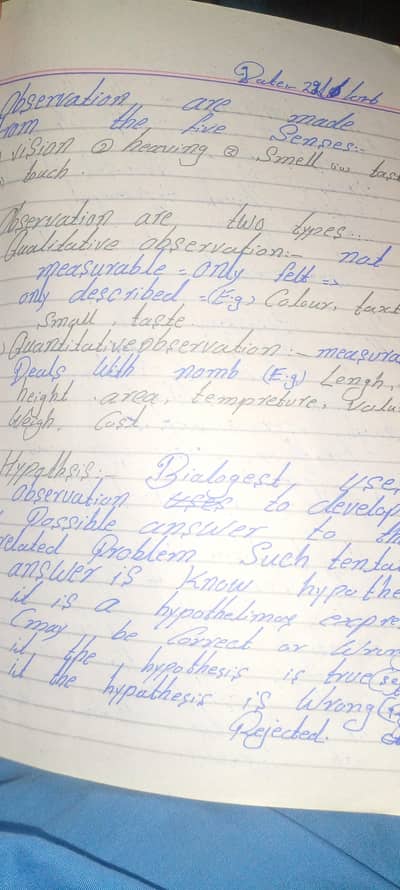 Observation are made
from the five Senses:-
vision ② hearing ③ Smell
touch.
Observation are two types.
Qualitative observation:- not
measurable = only felt =>
only described =(E.g) Colour,
Smell, taste.
Quantitative observation:-
Deals with nomb (E.g) Lengh,
height area, tempreture,
Weigh, Cost.
Hypothsis:- Bialogest
Observation to develop
Possible answer to
related Problem Such
answer is Know
it is a
(may be Correct or
if the hypothesis is true
if the hypathesis is Wrong
Rejected.